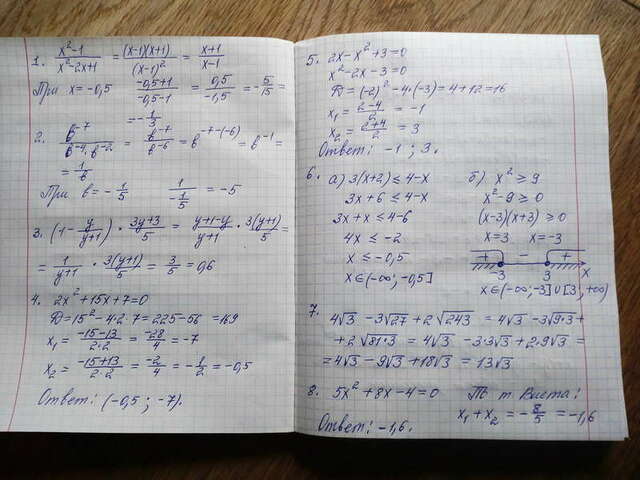 1. (x²-1)/(x²-2x+1) = ((x-1)(x+1))/((x-1)²) = (x+1)/(x-1)
При x = -0,5 (-0,5+1)/(-0,5-1) = 0,5/(-1,5) = -5/15 =
= -1/3
2. b⁻⁷/(b⁻⁴·b⁻²) = b⁻⁷/b⁻⁶ = b^(-7-(-6)) = b⁻¹ =
= 1/b
При b = -1/5 1/(-1/5) = -5
3. (1 - y/(y+1)) · (3y+3)/5 = (y+1-y)/(y+1) · 3(y+1)/5 =
= 1/(y+1) · 3(y+1)/5 = 3/5 = 0,6
4. 2x²+15x+7=0
D = 15²-4·2·7 = 225-56 = 169
x₁ = (-15-13)/(2·2) = -28/4 = -7
x₂ = (-15+13)/(2·2) = -2/4 = -1/2 = -0,5
Ответ: (-0,5; -7).
5. 2x-x²+3=0
x²-2x-3=0
D = (-2)²-4·(-3)=4+12=16
x₁ = (2-4)/2 = -1
x₂ = (2+4)/2 = 3
Ответ: -1; 3.
6. а) 3(x+2) ≤ 4-x
3x+6 ≤ 4-x
3x+x ≤ 4-6
4x ≤ -2
x ≤ -0,5
x∈(-∞; -0,5]
б) x² ≥ 9
x²-9 ≥ 0
(x-3)(x+3) ≥ 0
x=3 x=-3
+ - +
-3 3 x
x∈(-∞;-3]∪[3; +∞)
7. 4√3 - 3√27 + 2√243 = 4√3 - 3√9·3 +
+ 2√81·3 = 4√3 - 3·3√3 + 2·9√3 =
= 4√3 - 9√3 + 18√3 = 13√3
8. 5x²+8x-4=0 По т. Виета:
x₁+x₂ = -8/5 = -1,6
Ответ: -1,6.